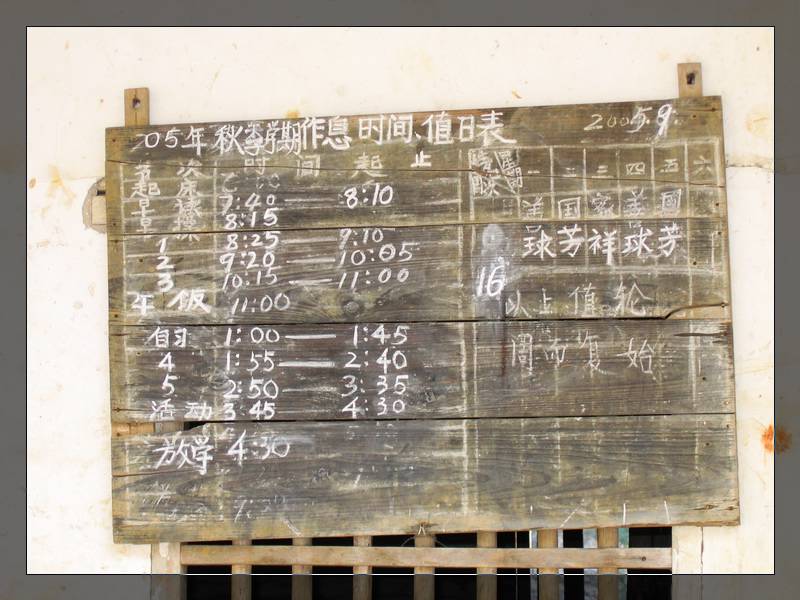 05年秋季学期作息时间、值日表 2005.9.
次 时 间 起 止
一 二 三 四 五 六
起床
早读 7:40 8:10
早操 8:15
1 8:25 9:10
2 9:20 — 10:05
3 10:15 — 11:00
午饭 11:00
自习 1:00 — 1:45
4 1:55 — 2:40
5 2:50 3:35
活动 3:45 4:30
放学 4:30
16
国 家 美 國
球 芳 祥 球 芳
以上值轮
周而复始